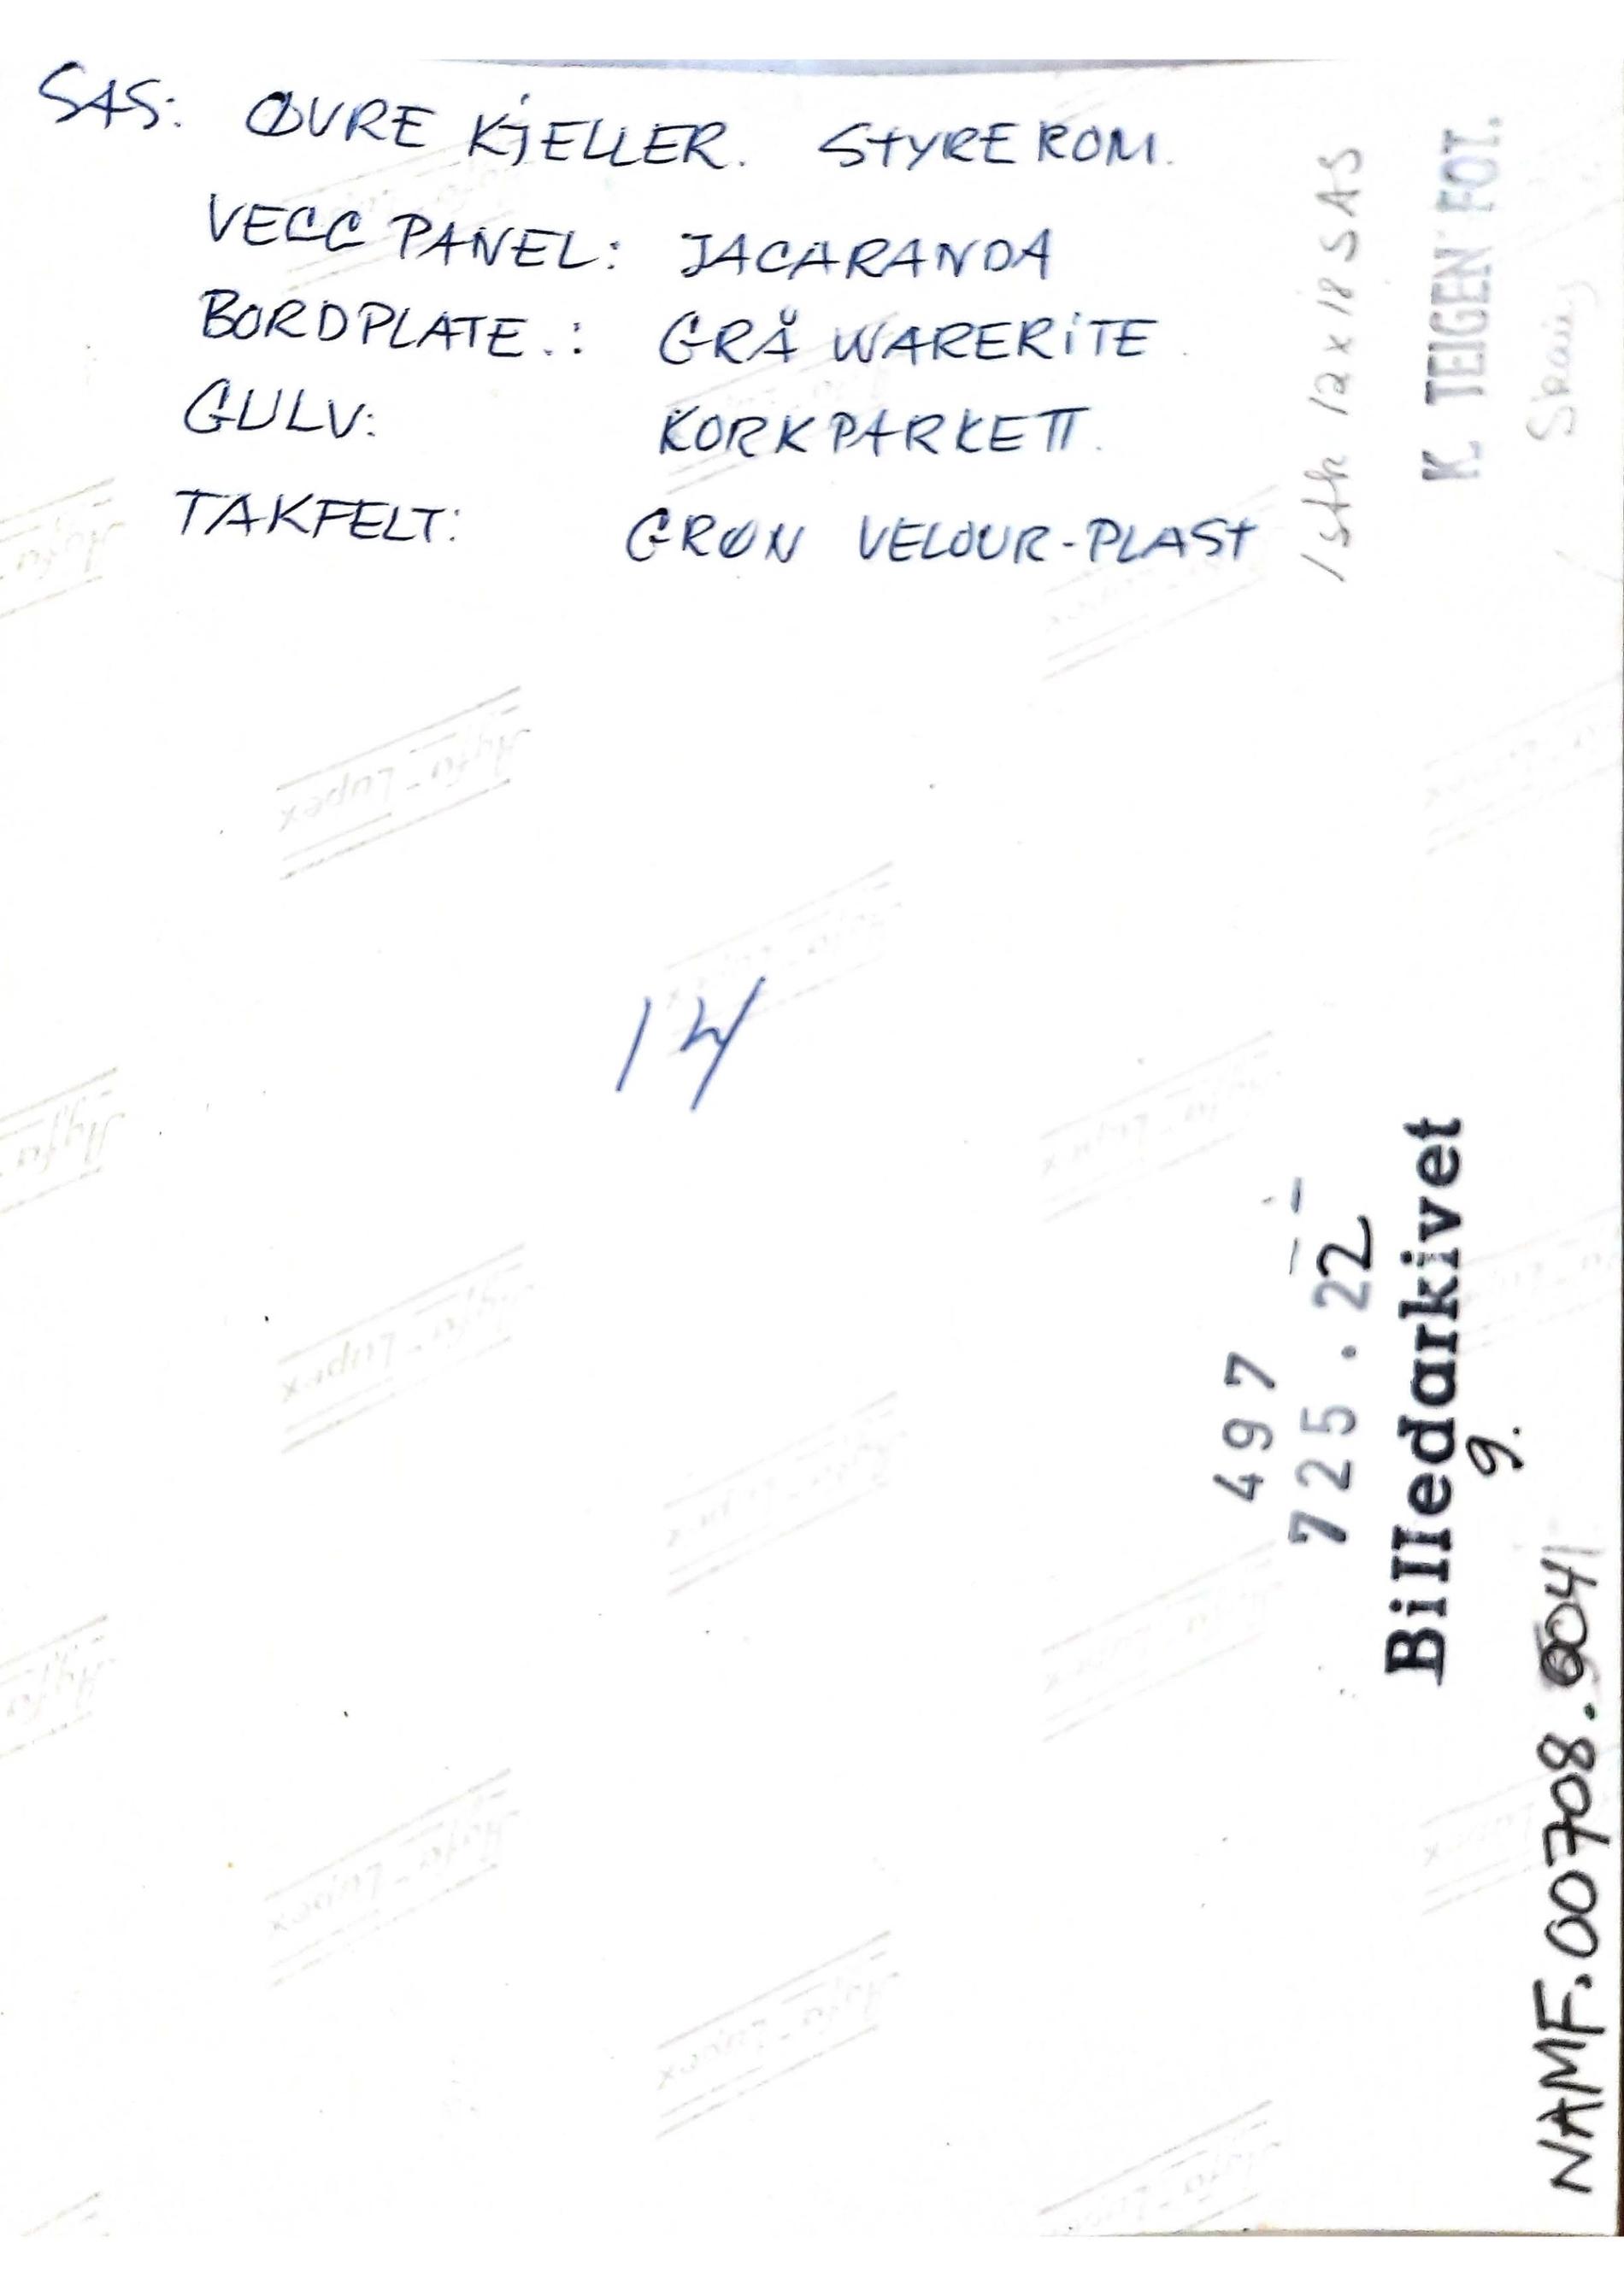 SAS: ØVRE KJELLER. STYREROM.
VEGG PANEL: JACARANDA
BORDPLATE.: GRÅ WARERITE.
GULV: KORKPARKETT.
TAKFELT: GRØN VELOUR-PLAST
1 stk 12x18 SAS
K. TEIGEN FOT.
14
497
725.22
Billedarkivet
g.
NAMF.00708.0041
Agfa-Lupex